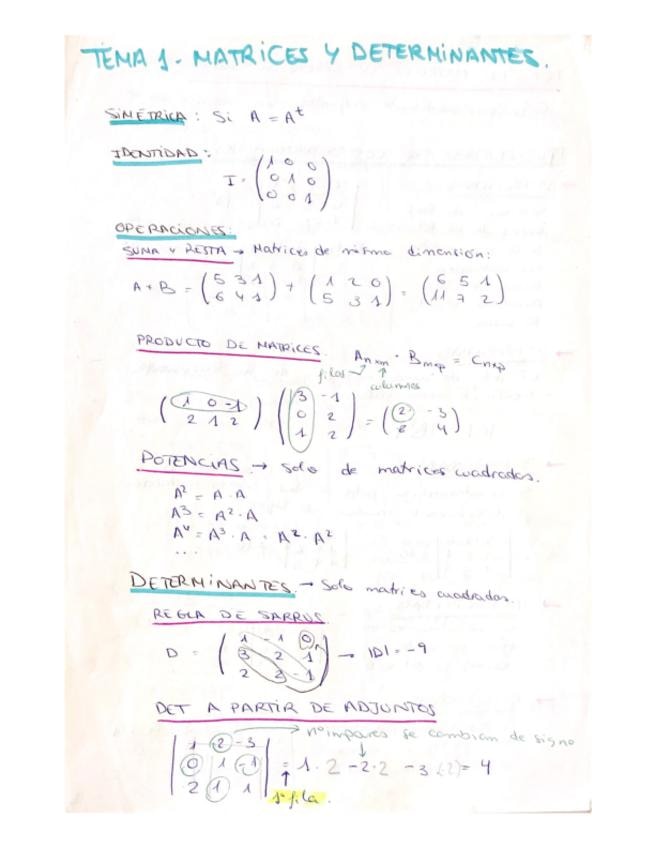 TEMA 1 - MATRICES Y DETERMINANTES.
SIMÉTRICA : Si A = Aᵗ
IDENTIDAD :
I = (1 0 0
0 1 0
0 0 1)
OPERACIONES:
SUMA Y RESTA → Matrices de misma dimensión:
A + B = (5 3 1 / 6 4 1) + (1 2 0 / 5 3 1) = (6 5 1 / 11 7 2)
PRODUCTO DE MATRICES. Aₙₓₘ · Bₘₓₚ = Cₙₓₚ
filas columnas
(1 0 -1 / 2 1 2) (3 -1 / 0 2 / 1 2) = (2 -3 / 8 4)
POTENCIAS → solo de matrices cuadradas.
A² = A · A
A³ = A² · A
A⁴ = A³ · A = A² · A²
...
DETERMINANTES. → Solo matrices cuadradas.
REGLA DE SARRUS
D = (1 -1 0 / 3 2 1 / 2 2 -1) → |D| = -9
DET A PARTIR DE ADJUNTOS
nº impares se cambian de signo
|1 -2 -3 / 0 1 -1 / 2 1 1| = 1 · 2 - 2 · 2 - 3 (-2) = 4
1ª fila.